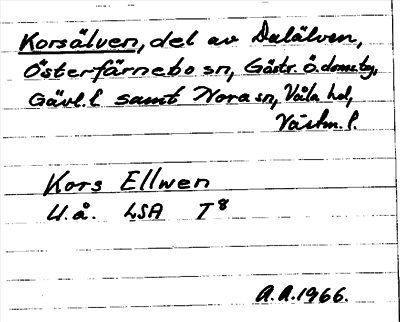 Korsälven, del av Dalälven,
Österfärnebo sn, Gästr. ö. domsby,
Gävl. l samt Nora sn, Våla hd,
Västm. l.
Kors Ellwen
U.å. LSA T 8
A.A. 1966.